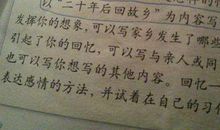 以“二十年后回故乡”为内容
发挥你的想象，可以写家乡发生了哪些
引起了你的回忆，可以写与亲人或同
也可以写你想写的其他内容。回忆一
表达感情的方法，并试着在自己的习